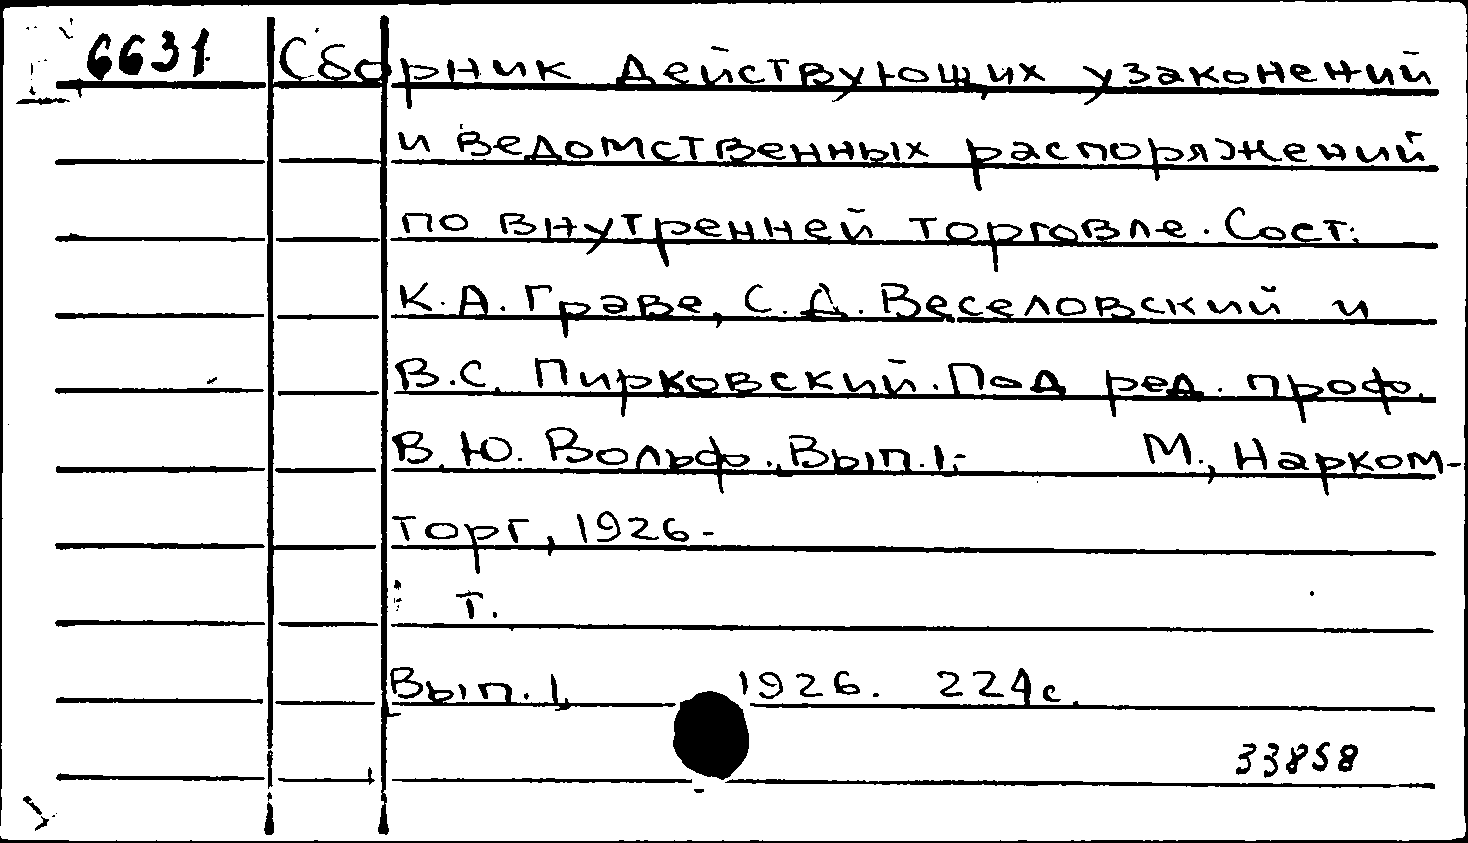 6631 Сборник действующих узаконений
и ведомственных распоряжений
по внутренней торговле. Сост.
К.А. Граве, С.Д. Веселовский и
В.С. Пирковский. Под ред. проф.
В.Ю. Вольф., Вып. 1,- М., Нарком-
торг, 1926-
т.
Вып. 1, 1926. 224с.
33858